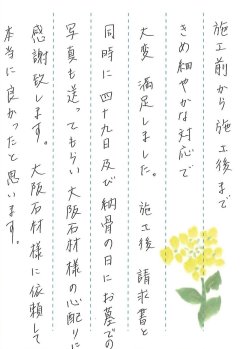 施工前から施工後まで
きめ細やかな対応で
大変 満足しました。 施工後 請求書と
同時に 四十九日及び 納骨の日に お墓での
写真も送ってもらい 大阪石材様の心配りに
感謝致します。 大阪石材様に依頼して
本当に良かったと思います。